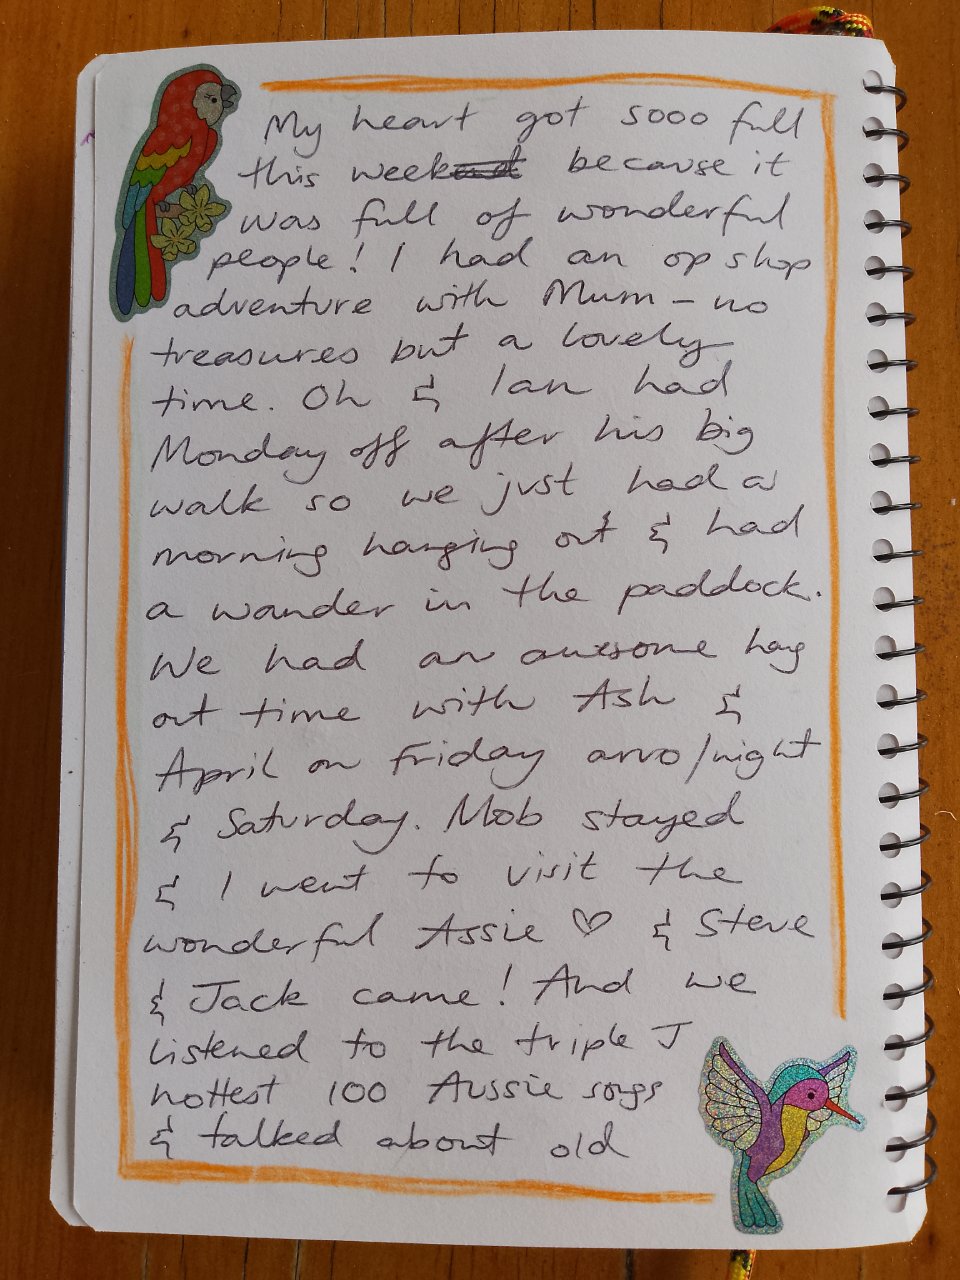 My heart got sooo full
this week because it
was full of wonderful
people! I had an op shop
adventure with Mum – no
treasures but a lovely
time. Oh & Ian had
Monday off after his big
walk so we just had a
morning hanging out & had
a wander in the paddock.
We had an awesome hang
out time with Ash &
April on Friday arvo/night
& Saturday. Mob stayed
& I went to visit the
wonderful Assie ♡ & Steve
& Jack came! And we
listened to the triple J
hottest 100 Aussie songs
& talked about old